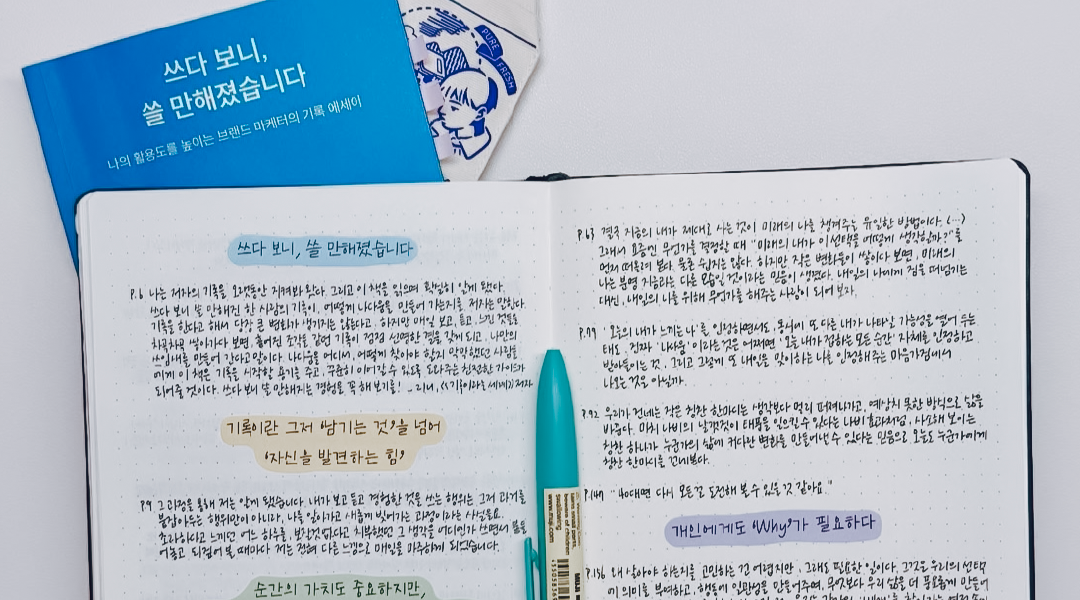 쓰다 보니,
쓸 만해졌습니다
나의 활용도를 높이는 브랜드 마케터의 기록 에세이
PURE
FRESH
쓰다 보니, 쓸 만해졌습니다
P.6 나는 저자의 기록을 오랫동안 지켜봐 왔다. 그리고 이 책을 읽으며 확실히 알게 됐다.
쓰다 보니 쓸 만해진 한 사람의 기록이, 어떻게 나다움을 만들어 가는지를. 저자는 말한다.
기록을 한다고 해서 당장 큰 변화가 생기지는 않는다고. 하지만 매일 보고, 듣고, 느낀 것들을
차곡차곡 쌓아가다 보면, 흩어진 조각들 같던 기록이 점점 선명한 결을 갖게 되고, 나만의
쓰임새를 만들어 간다고 말이다. 나다움을 어디서, 어떻게 찾아야 할지 막막했던 사람들
에게 이 책은 기록을 시작할 용기를 주고, 꾸준히 이어갈 수 있도록 도와주는 친절한 가이드가
되어줄 것이다. 쓰다 보니 쓸 만해지는 경험을, 꼭 해 보기를! - 리니, <기록이라는 세계> 저자
기록이란 그저 '남기는 것'을 넘어
'자신을 발견하는 힘'
P.9 그 과정을 통해 저는 알게 됐습니다. 내가 보고 듣고 경험한 것을 쓰는 행위는 그저 과거를
붙잡아두는 행위만이 아니라, 나를 알아가고 새롭게 빚어가는 과정이라는 사실을요.
초라하다고 느끼던 어느 하루를, 보잘것없다고 치부했던 그 생각을 어디인가 쓰면서 말을
어놓고 되짚어 볼 때마다 저는 전혀 다른 느낌으로 매일을 마주하게 되었습니다.
순간의 가치도 중요하지만,
P.63 결국 지금의 내가 제대로 사는 것이 미래의 나를 챙겨주는 유일한 방법이다. (…)
그래서 요즘엔 무언가를 결정할 때 "미래의 내가 이 선택을 어떻게 생각할까?"를
먼저 떠올려 본다. 물론 쉽지는 않다. 하지만 작은 변화들이 쌓이다 보면, 미래의
나는 분명 지금과는 다른 모습일 것이라는 믿음이 생겼다. 내일의 나에게 짐을 떠넘기는
대신, 내일의 나를 위해 무언가를 해주는 사람이 되어 보자.
P.79 '오늘의 내가 느끼는 나'를 인정하면서도, 동시에 또 다른 내가 나타날 가능성을 열어 두는
태도. 진짜 '나다움'이라는 것은 어쩌면 '오늘 내가 접하는 모든 순간' 자체를 인정하고
받아들이는 것, 그리고 그렇게 또 내일을 맞이하는 나를 인정해주는 마음가짐에서
나오는 것은 아닐까.
P.92 우리가 건네는 작은 칭찬 한마디는 생각보다 멀리 퍼져나가고, 예상치 못한 방식으로 삶을
바꾼다. 마치 나비의 날갯짓이 태풍을 일으킬 수 있다는 나비 효과처럼, 사소해 보이는
칭찬 하나가 누군가의 삶에 커다란 변화를 만들어낼 수 있다는 믿음으로 오늘도 누군가에게
칭찬 한마디를 건네본다.
P.149 "40대면 다시 모든 걸 도전해 볼 수 있을 것 같아요."
개인에게도 'Why'가 필요하다
P.156 왜 살아야 하는지를 고민하는 건 어렵지만, 그래도 필요한 일이다. 그것은 우리의 선택
에 의미를 부여하고, 행동에 일관성을 만들어주며, 무엇보다 우리 삶을 더 풍요롭게 만들어